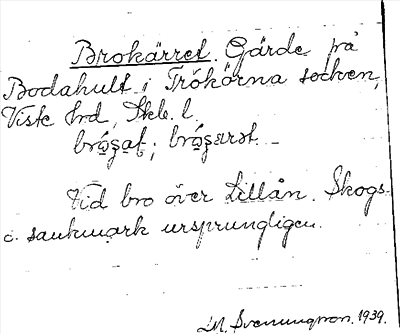 Brokärret. Gärde på
Bodahult i Trökörna socken,
Viste hrd, Skb. l.
Vid bro över Lillån. Skogs-
o. sankmark ursprungligen.
M. Svenungson. 1939.